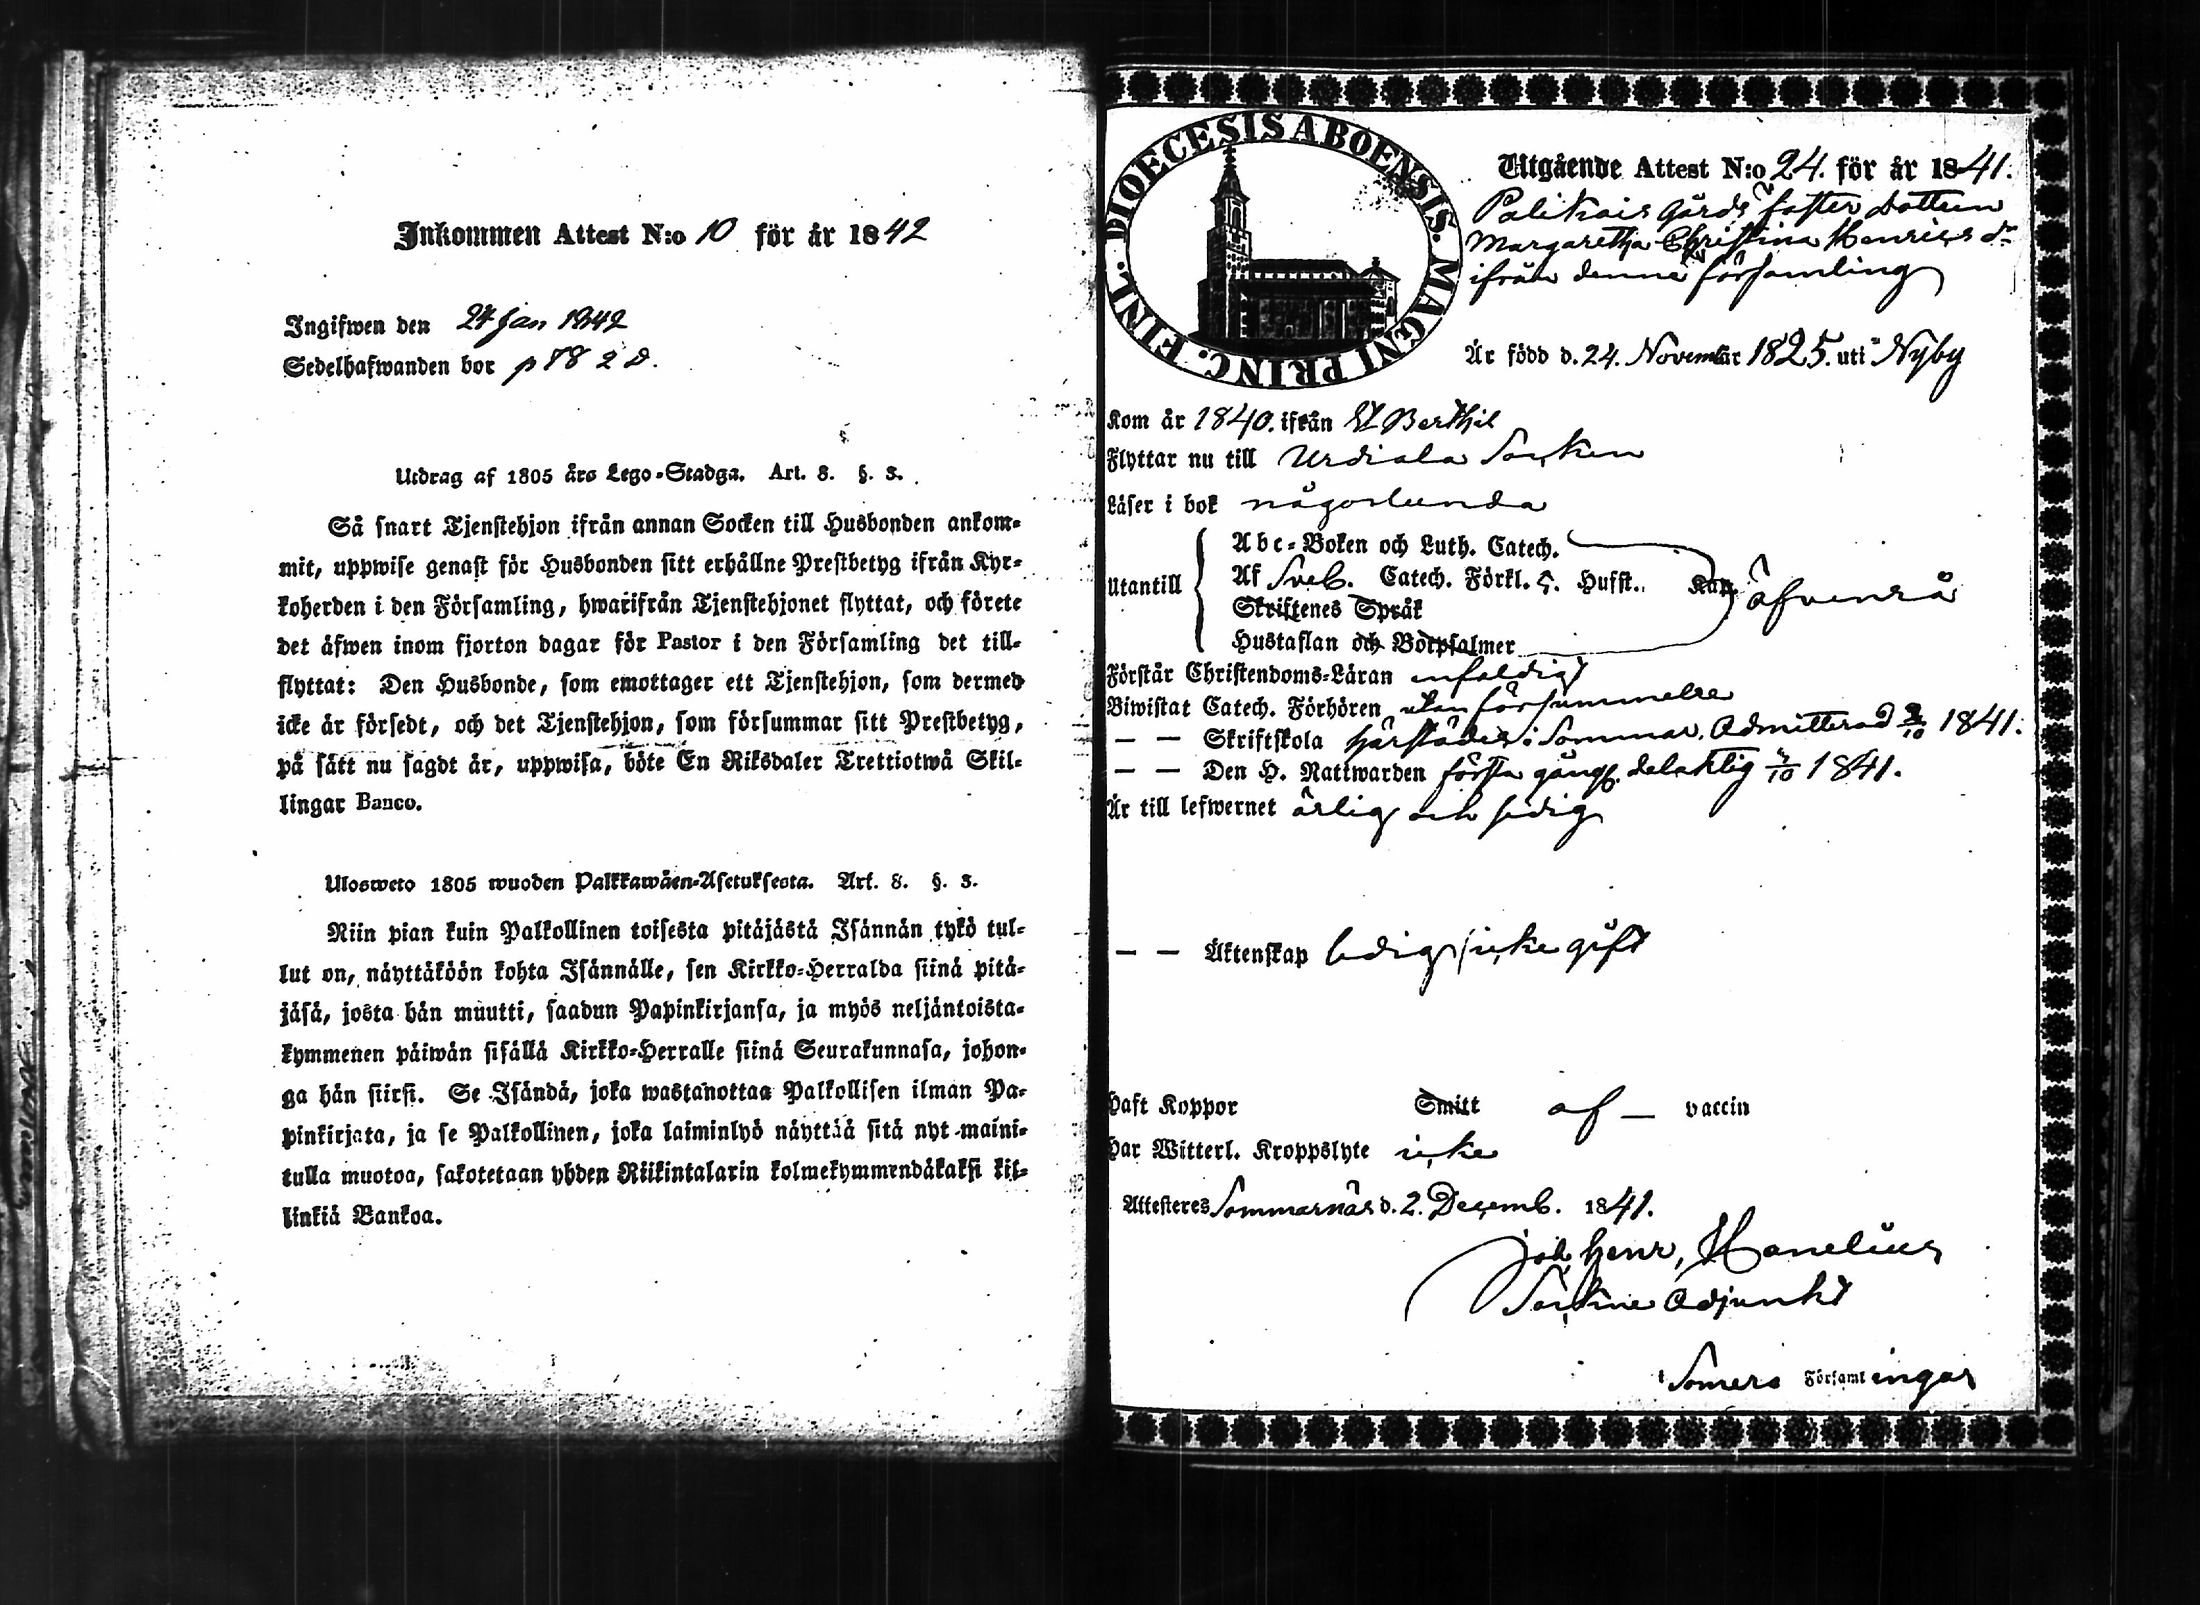 Inkommen Attest N:o 10 för år 1842
Ingifwen den 24 Jan 1842
Sedelhafwanden bor p 78 2 D.
Utdrag af 1805 års Lego-Stadga. Art. 8. §. 3.
Så snart Tjenstehjon ifrån annan Socken till Husbonden ankom-
mit, uppwise genast för Husbonden sitt erhållne Prestbetyg ifrån Kyr-
koherden i den Församling, hwarifrån Tjenstehjonet flyttat, och förete
det äfwen inom fjorton dagar för Pastor i den Församling det till-
flyttat: Den Husbonde, som emottager ett Tjenstehjon, som dermed
icke är försedt, och det Tjenstehjon, som försummar sitt Prestbetyg,
på sätt nu sagdt är, uppwisa, böte En Riksdaler Trettiotwå Skil-
lingar Banco.
Ulosweto 1805 wuoden Palkkawäen-Asetuksesta. Art. 8. §. 3.
Niin pian kuin Palkollinen toisesta pitäjästä Isännän tykö tul-
lut on, näyttäköön kohta Isännälle, sen Kirkko-Herralda siinä pitä-
jäsä, josta hän muutti, saadun Papinkirjansa, ja myös neljäntoista-
kymmenen päiwän sisällä Kirkko-Herralle siinä Seurakunnasa, johon-
ga hän siirsi. Se Isändä, joka wastanottaa Palkollisen ilman Pa-
pinkirjata, ja se Palkollinen, joka laiminlyö näyttää sitä nyt maini-
tulla muotoa, sakotetaan yhden Riikintalarin kolmekymmendäkaksi kil-
linkiä Bankoa.
DIOECESIS ABOENSIS. MAGNI PRINC. FINL.
Utgående Attest N:o 24. för år 1841.
Palikais gårds foster dottern
Margaretha Christina Henrics dr
ifrån denne församling
Är född d. 24. November 1825. uti Nyby
Kom år 1840. ifrån St Berthil
Flyttar nu till Urdiala Socken
Läser i bok någorlunda
Abc-Boken och Luth. Catech.
Utantill Af Sveb. Catech. Förkl. 5. Hufst. Kan äfvenså
Skriftenes Språk
Hustaflan och Botpsalmer
Förstår Christendoms-Läran enfaldigt
Biwistat Catech. Förhören utan försummelse
— — Skriftskola härstädes i Sommar. Admitterad 2/10 1841.
— — Den H. Nattwarden första gång delaktig 3/10 1841.
Är till lefwernet ärlig och sedig
— — Äktenskap ledig icke gift
Haft Koppor Smitt af — vaccin
Har Witterl. Kroppslyte icke
Attesteres Sommarnäs d. 2. Decemb. 1841.
Joh. Henr. Hanelius
Sockne Adjunkt
i Somero Församlingar